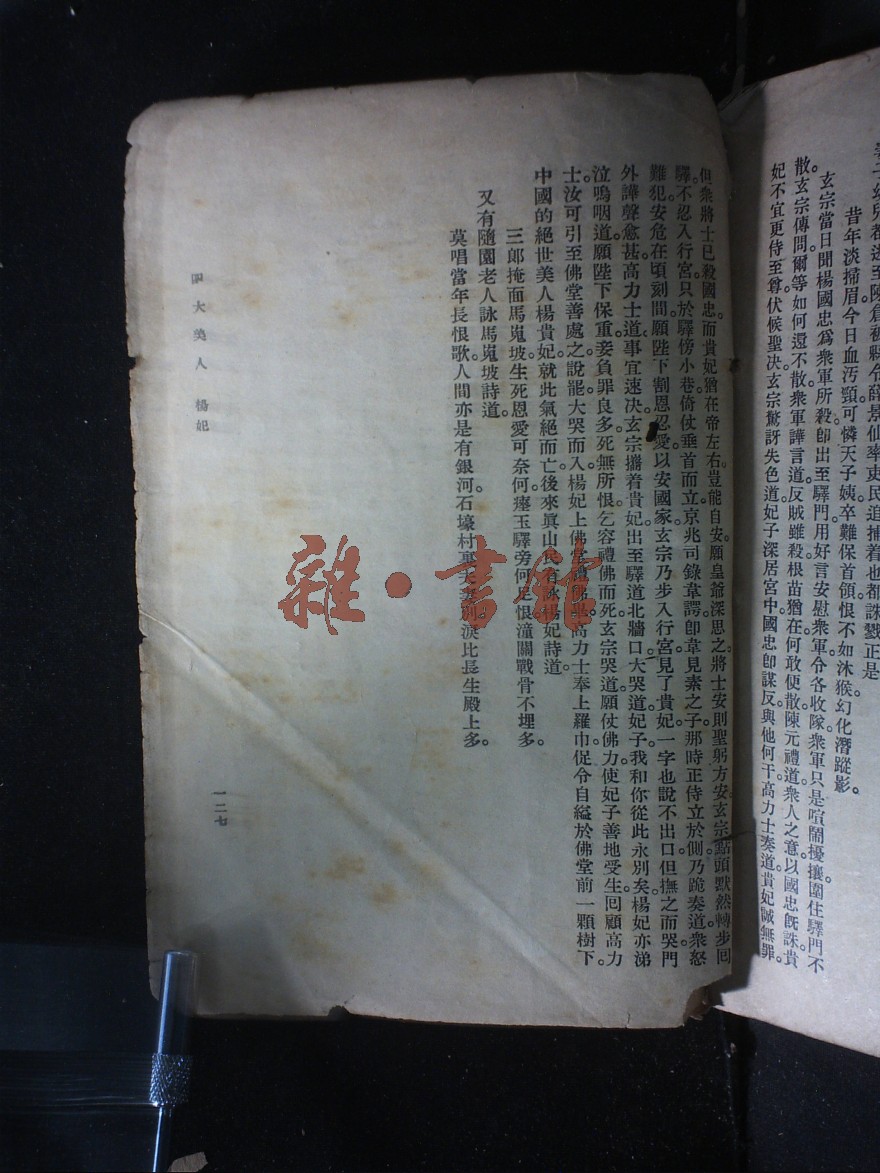 妻子幼兒都逃至陳倉被縣令薛景仙率吏民追捕着也都誅戮正是
昔年淡掃眉今日血汚頸可憐天子姨卒難保首領恨不如沐猴幻化潛蹤影。
玄宗當日聞楊國忠爲衆軍所殺卽出至驛門用好言安慰衆軍令各收隊衆軍只是喧鬧擾攘圍住驛門不
散。玄宗傳問爾等如何還不散衆軍譁言道反賊雖殺根苗猶在何敢便散陳元禮道衆人之意以國忠旣誅貴
妃不宜更侍至尊伏候聖决玄宗驚訝失色道妃子深居宮中國忠卽謀反與他何干高力士奏道貴妃誠無罪。
但衆將士已殺國忠。而貴妃猶在帝左右豈能自安願皇爺深思之將士安則聖躬方安玄宗點頭默然轉步回
驛。不忍入行宮只於驛傍小巷倚仗垂首而立京兆司錄韋諤卽韋見素之子那時正侍立於側乃跪奏道衆怒
難犯安危在頃刻間願陛下割恩忍愛以安國家玄宗乃步入行宮見了貴妃一字也說不出口但撫之而哭門
外譁聲愈甚高力士道事宜速决玄宗攜着貴妃出至驛道北牆口大哭道妃子我和你從此永別矣。楊妃亦涕
泣嗚咽道願陛下保重。妾負罪良多死無所恨乞容禮佛而死玄宗哭道願仗佛力使妃子善地受生回顧高力
士。汝可引至佛堂善處之說罷大哭而入楊妃上佛堂禮佛畢高力士奉上羅巾促令自縊於佛堂前一顆樹下。
中國的絕世美人楊貴妃就此氣絕而亡。後來眞山民有詠楊妃詩道。
三郞掩面馬嵬坡生死恩愛可奈何瘞玉驛旁何足恨潼關戰骨不埋多。
又有隨園老人詠馬嵬坡詩道。
莫唱當年長恨歌。人間亦是有銀河石壕村裏夫妻別淚比長生殿上多。
四大美人 楊妃
一二七
雜·書館